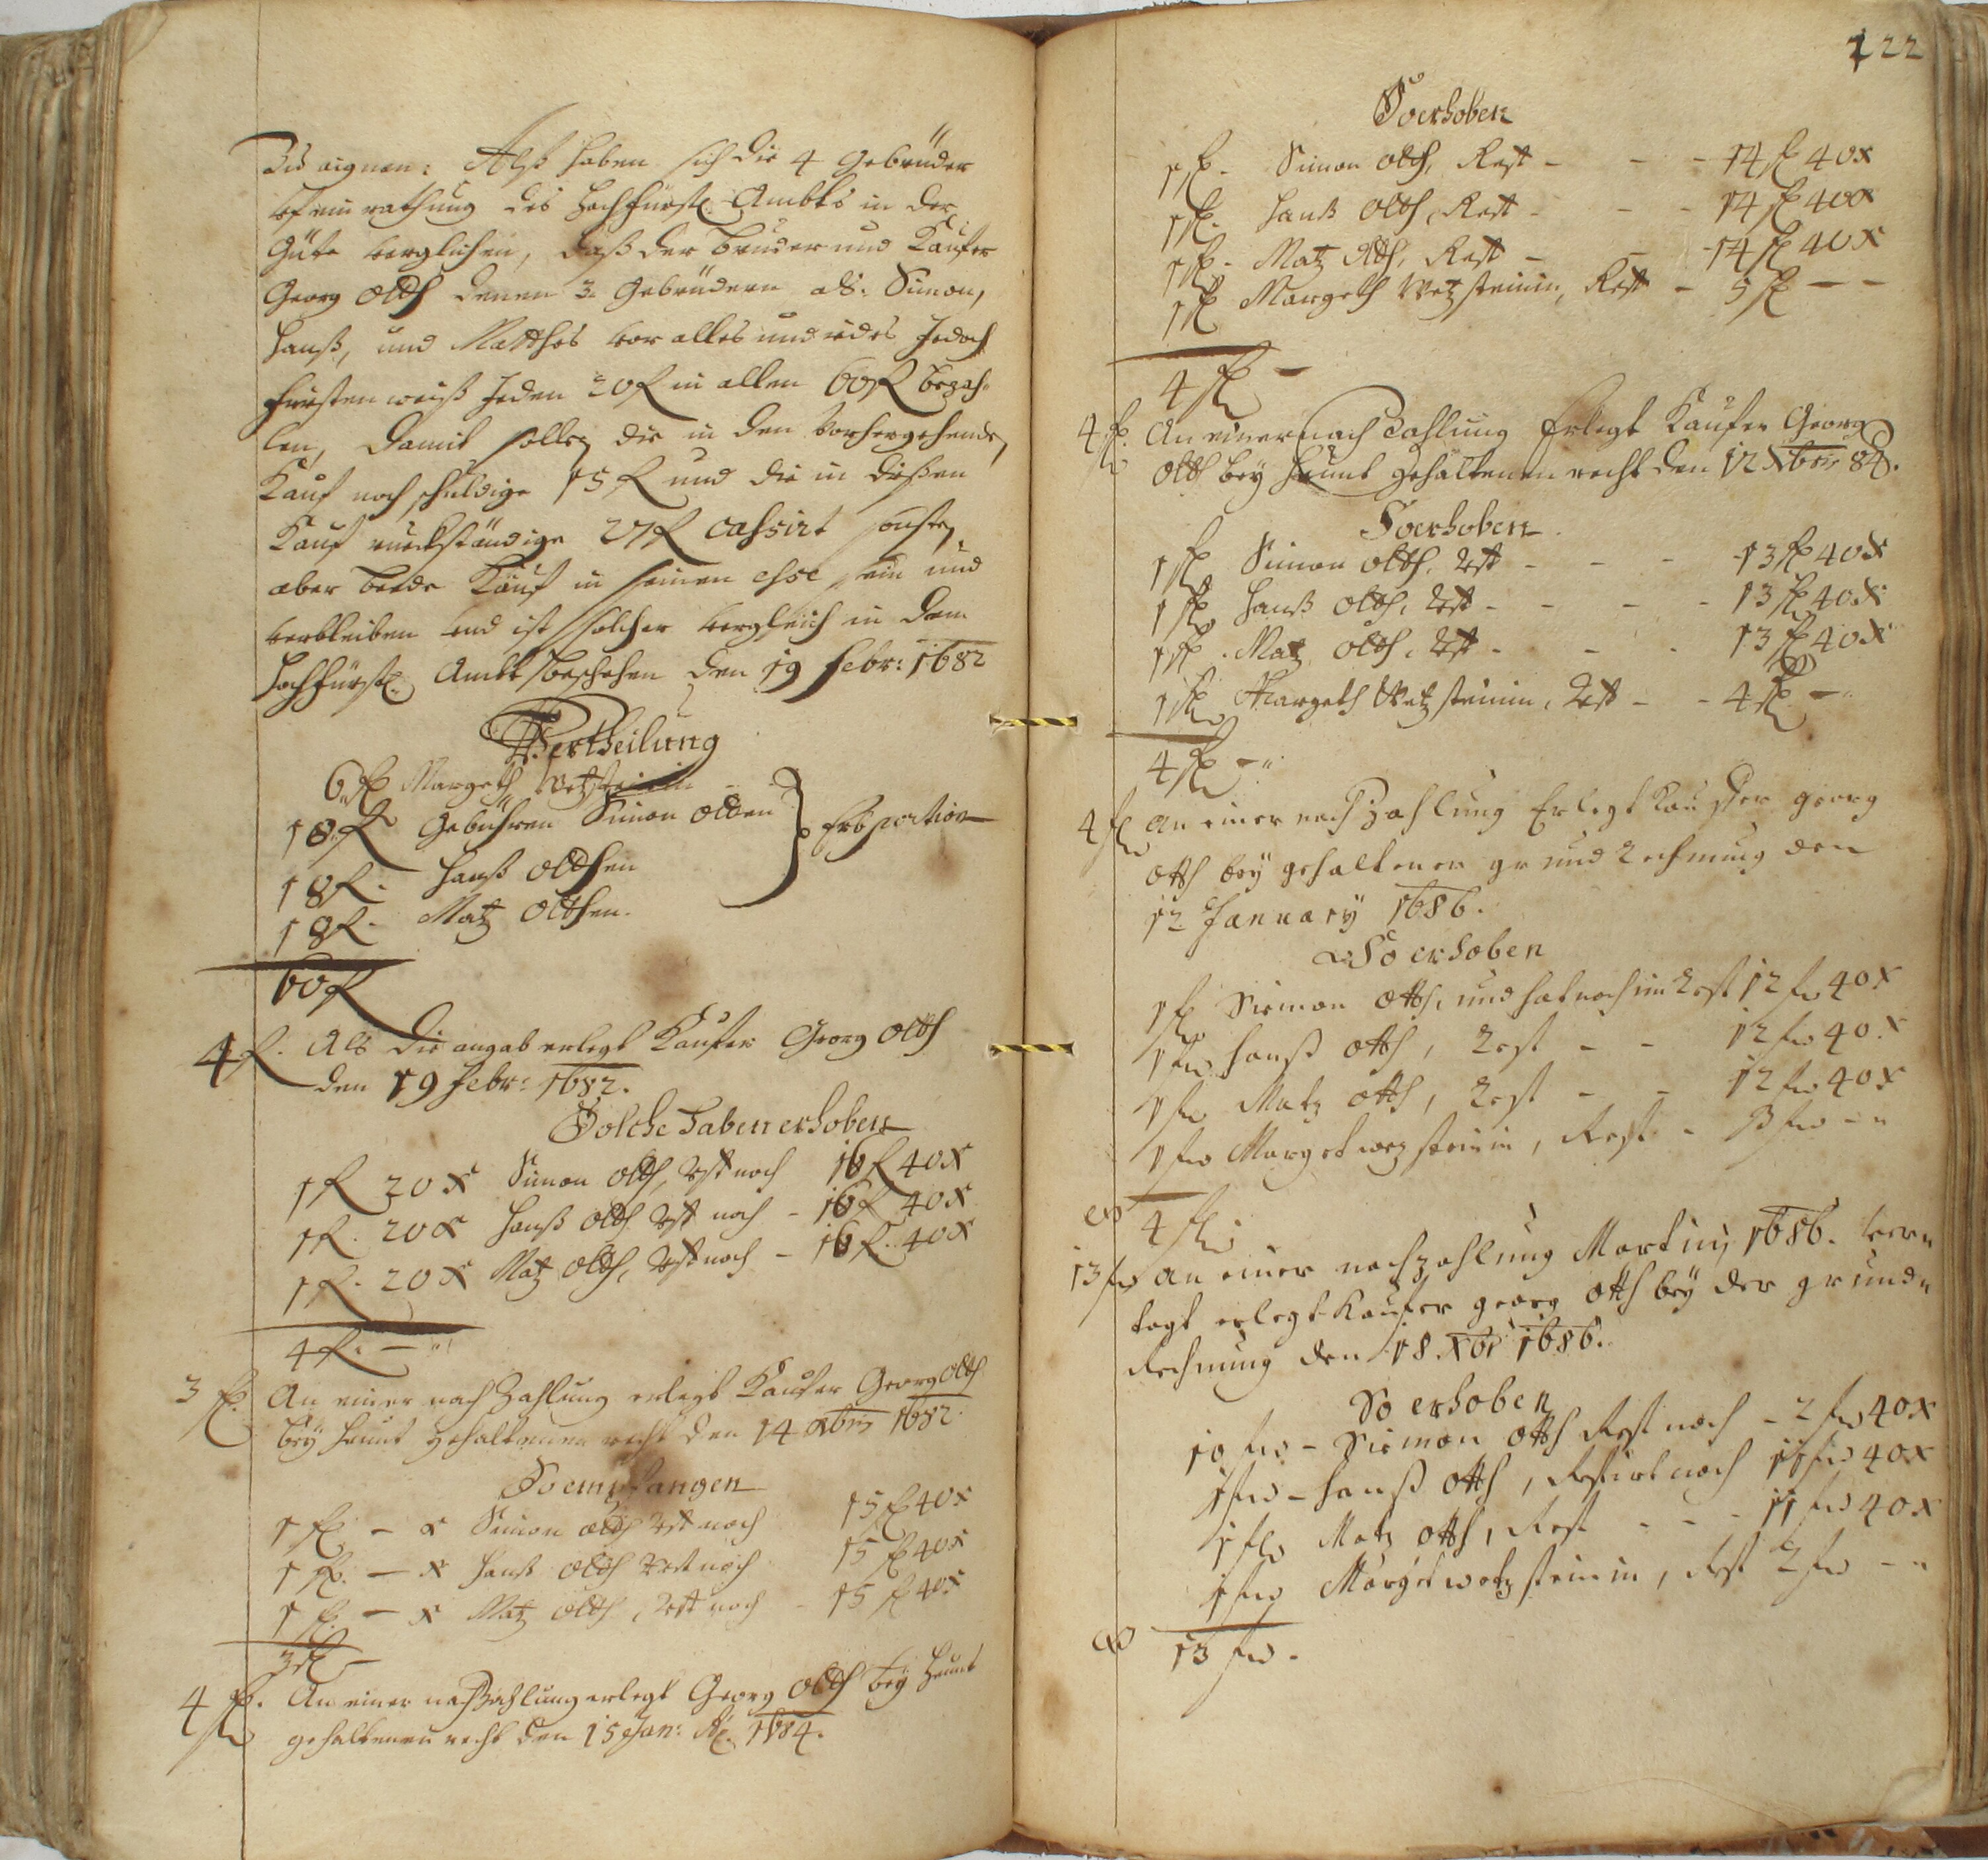 Zu aignen: Alß haben sich die 4 Gebrüder
uf einrathung des Hochfürstl. Ambts in der
Güte verglichen, daß der bruder und Kaufer
Georg Olth denen 3. Gebrüdern als: Simon,
Hanß, und Matthes vor alles und iedes Jedoch
fristen weiß Jeden 20 fl in allen 60 fl bezah-
len, Damit sollen die in den Vorhergehenden
Kauf noch schuldige 15 fl und die in dießen
Kauf ruckständige 27 fl cassirt sonsten
aber beede Käuf in seinen esse sein und
verbleiben und ist solcher vergleich in dem
Hochfürstl. Ambt beschehen den 19 Febr: 1682
Vertheilung
6 fl Margeth Wetzsteinin
18 fl Gebühren Simon Olden
18 fl. Hanß Olthen
Erbportion
18 fl. Matz Olthen.
60 fl
4 fl. Als die angab erlegt Kaufer Georg Olth
den 19 Febr: 1682.
Solche haben erhoben
1 fl 20 x Simon Olth, Rest noch 16 fl 40 x
1 fl. 20 x Hanß Olth Rest noch - 16 fl 40 x
1 fl. 20 x Matz Olth, Rest noch - 16 fl. 40 x
4 fl. —
3 fl. An einer nach Zahlung erlegt Kaufer Georg Olth
bey heunt gehaltenen recht den 14 Xbris 1682.
So empfangen
1 fl. — x Simon Olth Rest noch 15 fl 40 x
1 fl. — x Hanß Olth Rest noch 15 fl 40 x
1 fl. — x Matz Olth, Rest noch - 15 fl 40 x
3 fl —
4 fl. An einer nachzahlung erlegt Georg Olth bey heunt
gehaltenen recht den 15 Jan: 1684.
122
So erhoben
1 fl. Simon Olth, Rest - - - 14 fl 40 x
1 fl. Hanß Olth, Rest - - - 14 fl 40 x
1 fl. Matz Olth, Rest - - 14 fl 40 x
1 fl Margeth Wetzsteinin, Rest - 5 fl — -
4 fl —
4 fl. An einer nach Zahlung Erlegt Kaufer Georg
Olth bey heunt gehaltenen recht den 12 Xbris 84.
So erhoben
1 fl Simon Olth, Rest - - - 13 fl 40 x
1 fl Hanß Olth, Rest - - - - 13 fl 40 x
1 fl. Matz Olth, Rest - - - 13 fl 40 x
1 fl Margeth Wetzsteinin, Rest - - 4 fl —
4 fl —
4 fl an einer nach zahlung Erlegt Kauffer georg
Otth bey gehaltener grund Rechnung den
12 January 1686.
So erhoben
1 fl Siemon Otth, und hat noch im Rest 12 fl 40 x
1 fl Hanß Otth, Rest - - 12 fl 40 x
1 fl Matz Otth, Rest - - 12 fl 40 x
1 fl Marget wezsteinin, Rest - 3 fl - -
4 fl
13 fl an einer nachzahlung Martiny 1686. ver-
tagt erlegt Kaufer georg Otth bey der grund-
Rechnung den 18. Xbr 1686.
So erhoben
10 fl - Siemon Otth Rest noch - 2 fl 40 x
1 fl - Hanß Otth, Restirt noch 11 fl 40 x
1 fl Matz Otth, Rest - - - 11 fl 40 x
1 fl Marget wetzsteinin, Rest 2 fl - -
13 fl -